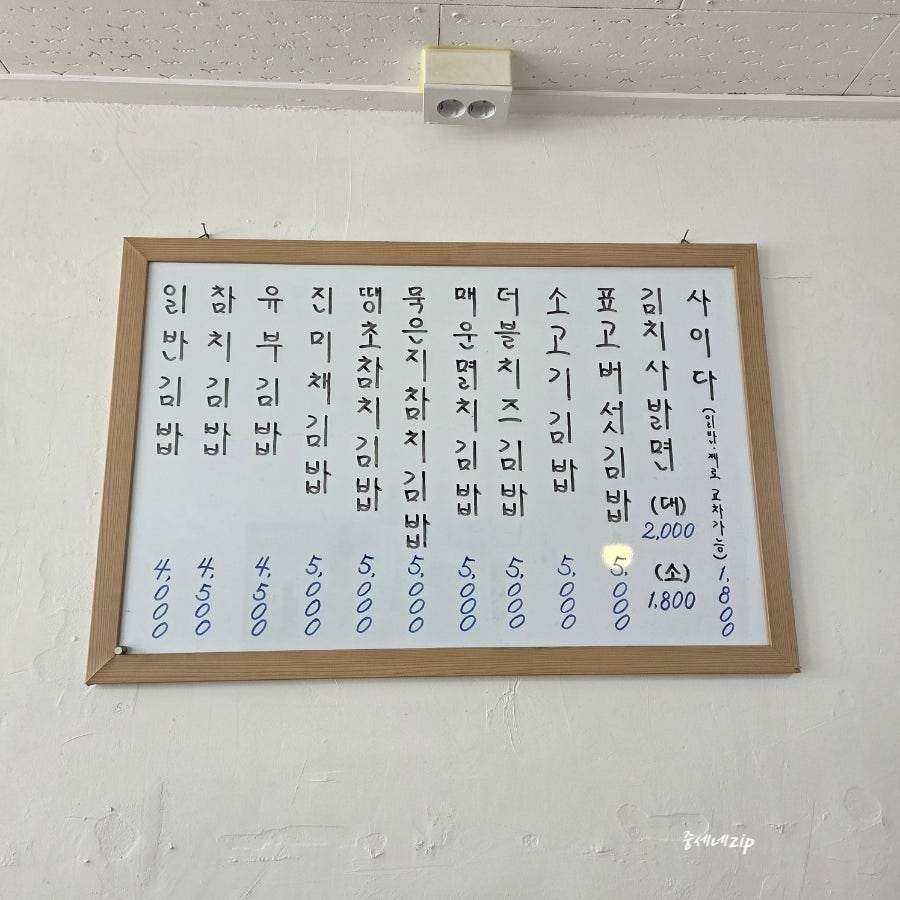 일반김밥 4,000
참치김밥 4,500
유부김밥 4,500
진미채김밥 5,000
땡초참치김밥 5,000
묵은지참치김밥 5,000
매운멸치김밥 5,000
더블치즈김밥 5,000
소고기김밥 5,000
표고버섯김밥 5,000
김치사발면 (대) 2,000 (소) 1,800
사이다 (일반·제로 교차가능) 1,800
중세네zip